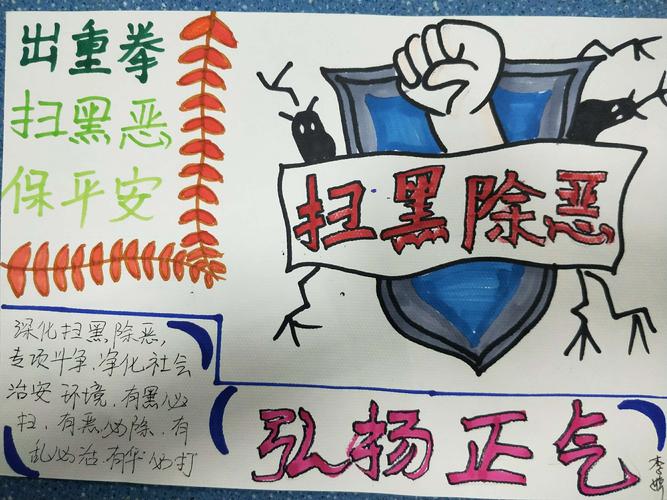 出重拳
扫黑恶
保平安
扫黑除恶
深化扫黑除恶,
专项斗争,净化社会
治安环境,有黑必
扫,有恶必除,有
乱必治,有伞必打
弘扬正气
李